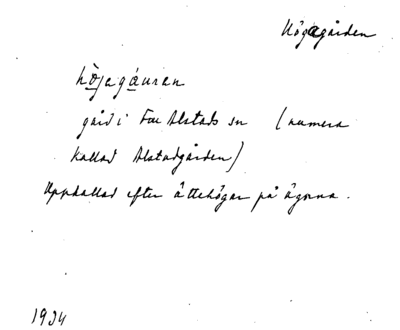 Högagården
hö̀jagáuran
gård i Fru Alstads sn (numera
kallad Alstadgården)
Uppkallad efter ättehögar på ägorna.
1934